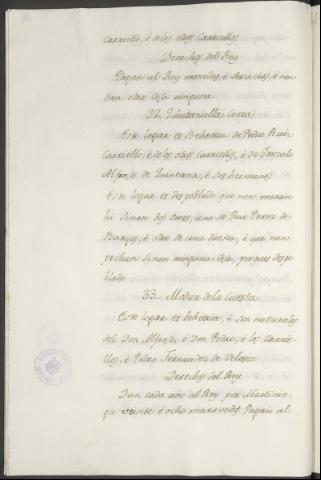 Carriello, é delos otros Carriellos.
Derechos del Rey
Pagan al Rey moneda, é servicios, é non
dan otra cosa ninguna
32. Quintaniella Corca
Ese logar es Behetria de Pedro Ruiz
Carriello, é delos otros Carriellos, é de Gonzalo
Alfonso de Quintana, é sus hermanos
Ese logar es despoblado que non moran
hi sinon dos omes, uno de Ruy Perez de
Burgos, é otro de una dueña, é que non
pechan sinon ninguna cosa, porque es despo-
blado
33. Modua dela Cuesta
Este logar es behetria, é son naturales
del Don Alfonso, é Don Pedro, é los Carrie-
llos, é Pedro Fernandez de Velasco
Derechos del Rey
Dan cada año al Rey por Martinie-
ga veinte é ocho maravedis. Pagan al